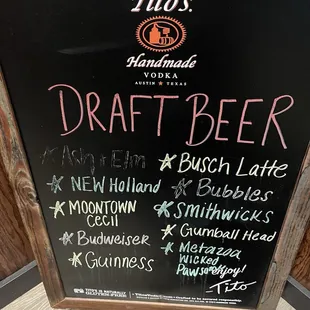 Tito's
Handmade
VODKA
AUSTIN ★ TEXAS
DRAFT BEER
Ash + Elm
NEW Holland
MOONTOWN
CECIL
Budweiser
Guinness
Busch Latte
Bubbles
Smithwicks
Gumball Head
Metazoa
Wicked
Paws
enjoy!
Tito
TITO'S IS NATURALLY
GLUTEN-FREE